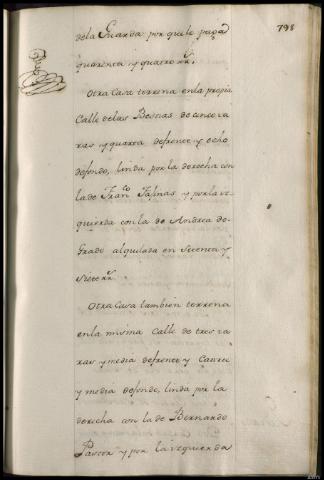 798
dela Guarda por que le pagā
quarenta y quatro rr.
Otra Casa terrena enla propia
Calle delas Besnas de cinco va
ras y quarta defrente y ocho
defondo, linda por la derecha con
lade Franco y por la iz
quierda con la de Andrea de
Grado alquilada en Setenta y
Siete rr.
Otra Casa tambien terrena
enla misma Calle de tres va
ras y media defrente y Catorce
y media defondo, linda por la
derecha con la de Bernardo
Pastor y por la izquierda